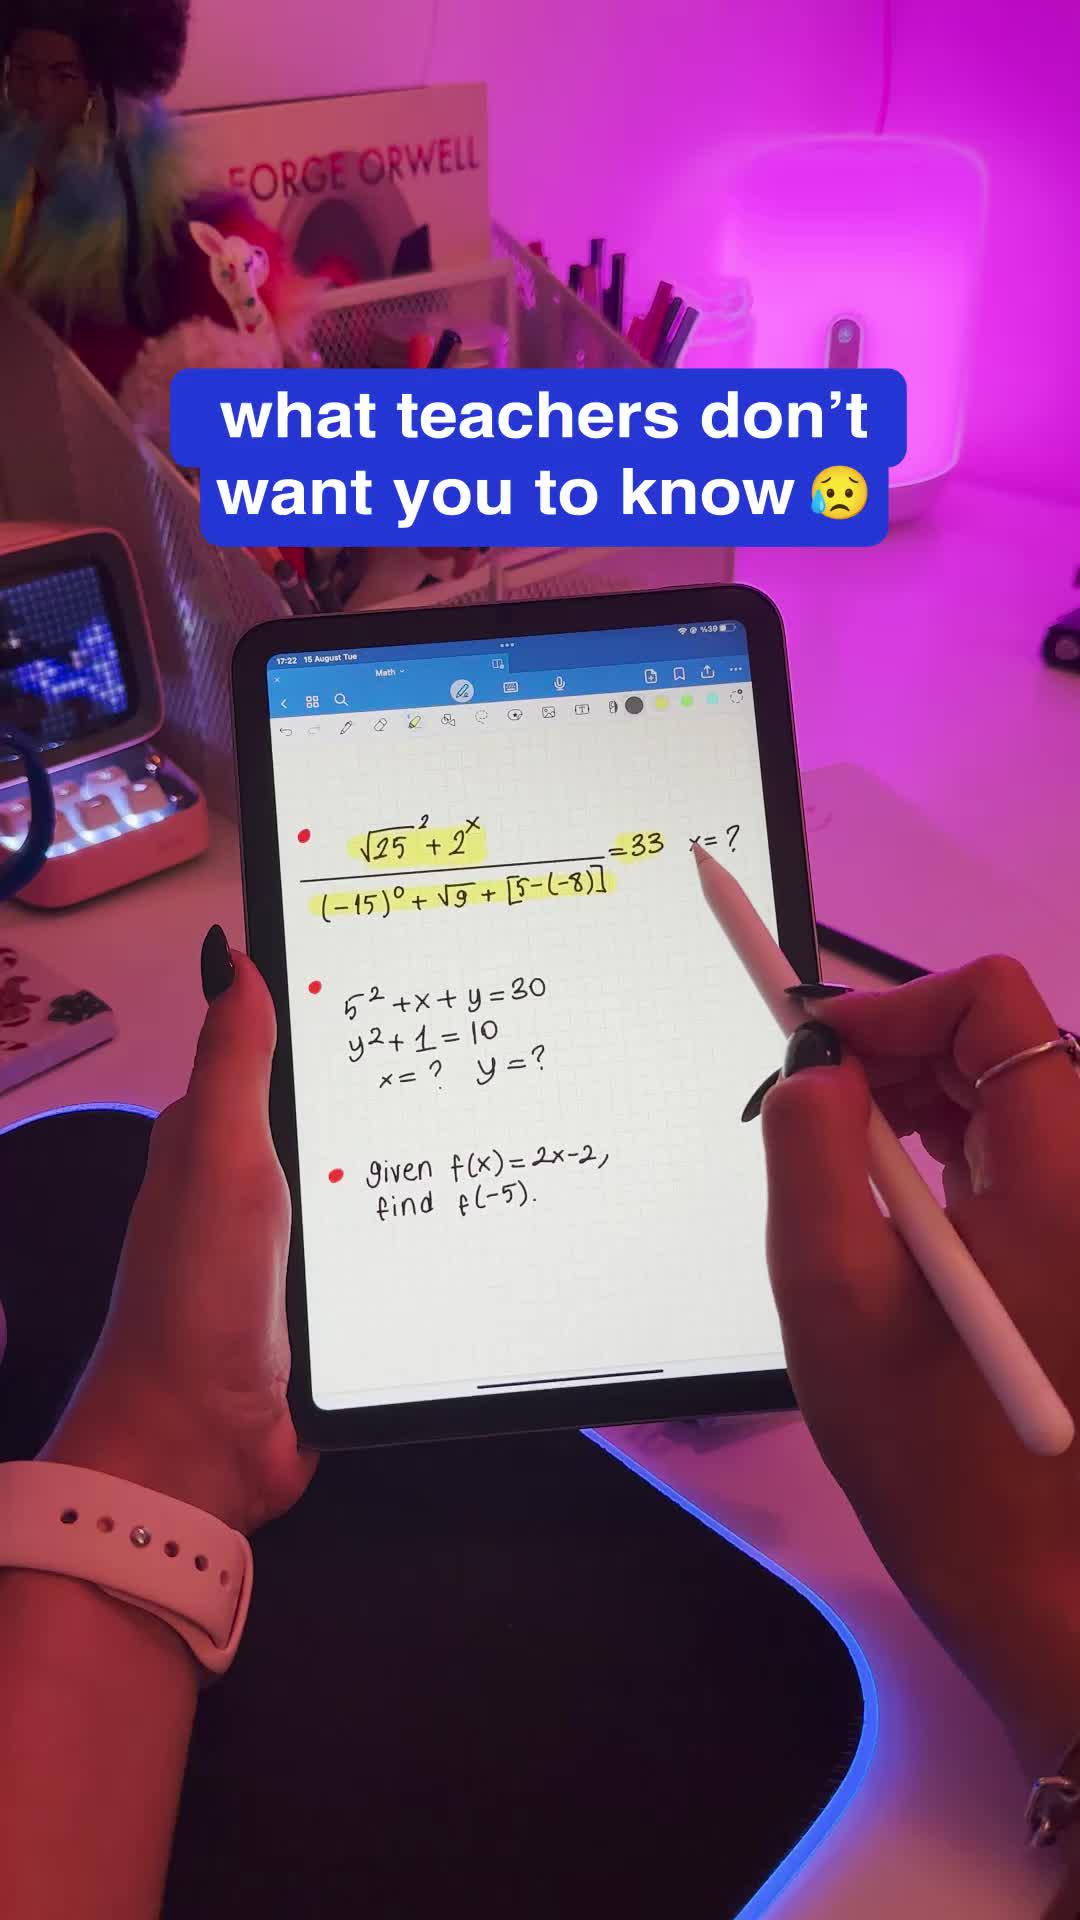 FORGE ORWELL
what teachers don’t
want you to know 😥
17:22 15 August Tue
%39
Math
√25² + 2ˣ
(-15)⁰ + √9 + [5-(-8)]
=33 x=?
5² +x+y=30
y²+1=10
x=? y=?
given f(x)=2x-2,
find f(-5).